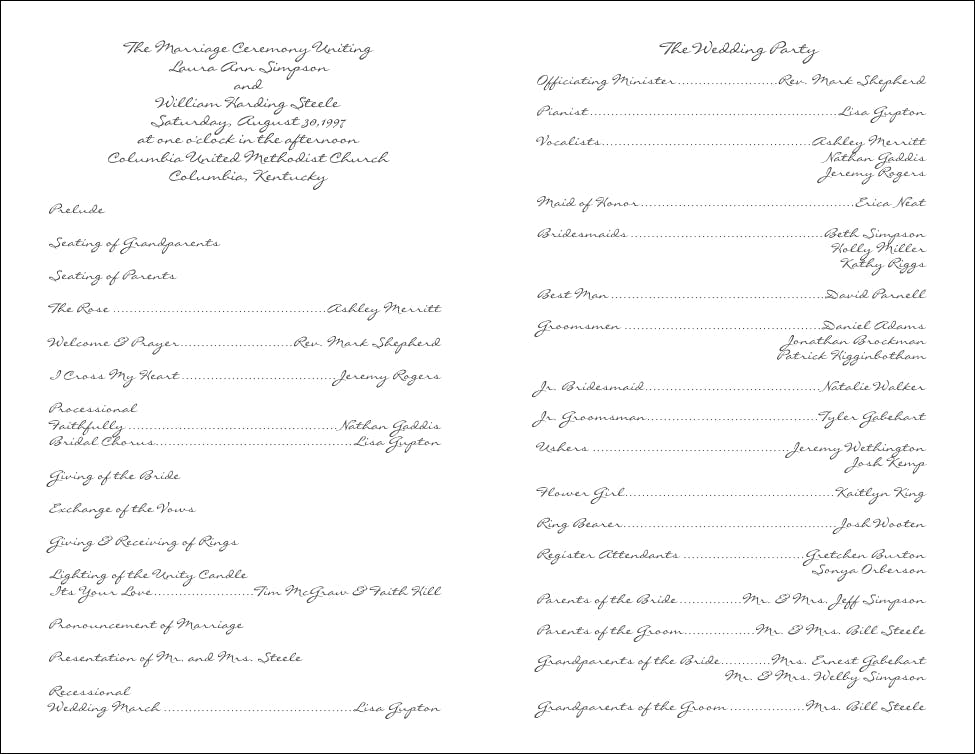 The Marriage Ceremony Uniting
Laura Ann Simpson
and
William Harding Steele
Saturday, August 30, 1997
at one o'clock in the afternoon
Columbia United Methodist Church
Columbia, Kentucky
Prelude
Seating of Grandparents
Seating of Parents
The Rose ..................................................Ashley Merritt
Welcome & Prayer...........................Rev. Mark Shepherd
I Cross My Heart.....................................Jeremy Rogers
Processional
Faithfully ..................................................Nathan Gaddis
Bridal Chorus...............................................Lisa Gupton
Giving of the Bride
Exchange of the Vows
Giving & Receiving of Rings
Lighting of the Unity Candle
Its Your Love........................Tim McGraw & Faith Hill
Pronouncement of Marriage
Presentation of Mr. and Mrs. Steele
Recessional
Wedding March .............................................Lisa Gupton
The Wedding Party
Officiating Minister ........................Rev. Mark Shepherd
Pianist...........................................................Lisa Gupton
Vocalists..................................................Ashley Merritt
Nathan Gaddis
Jeremy Rogers
Maid of Honor...................................................Erica Neat
Bridesmaids ..............................................Beth Simpson
Holly Miller
Kathy Riggs
Best Man ...................................................David Parnell
Groomsmen ...............................................Daniel Adams
Jonathan Brockman
Patrick Higginbotham
Jr. Bridesmaid..........................................Natalie Walker
Jr. Groomsman.........................................Tyler Gabehart
Ushers ...............................................Jeremy Wethington
Josh Kemp
Flower Girl..................................................Kaitlyn King
Ring Bearer...................................................Josh Wooten
Register Attendants .............................Gretchen Burton
Sonya Orberson
Parents of the Bride ...............Mr. & Mrs. Jeff Simpson
Parents of the Groom.................Mr. & Mrs. Bill Steele
Grandparents of the Bride............Mrs. Ernest Gabehart
Mr. & Mrs. Welby Simpson
Grandparents of the Groom ..................Mrs. Bill Steele